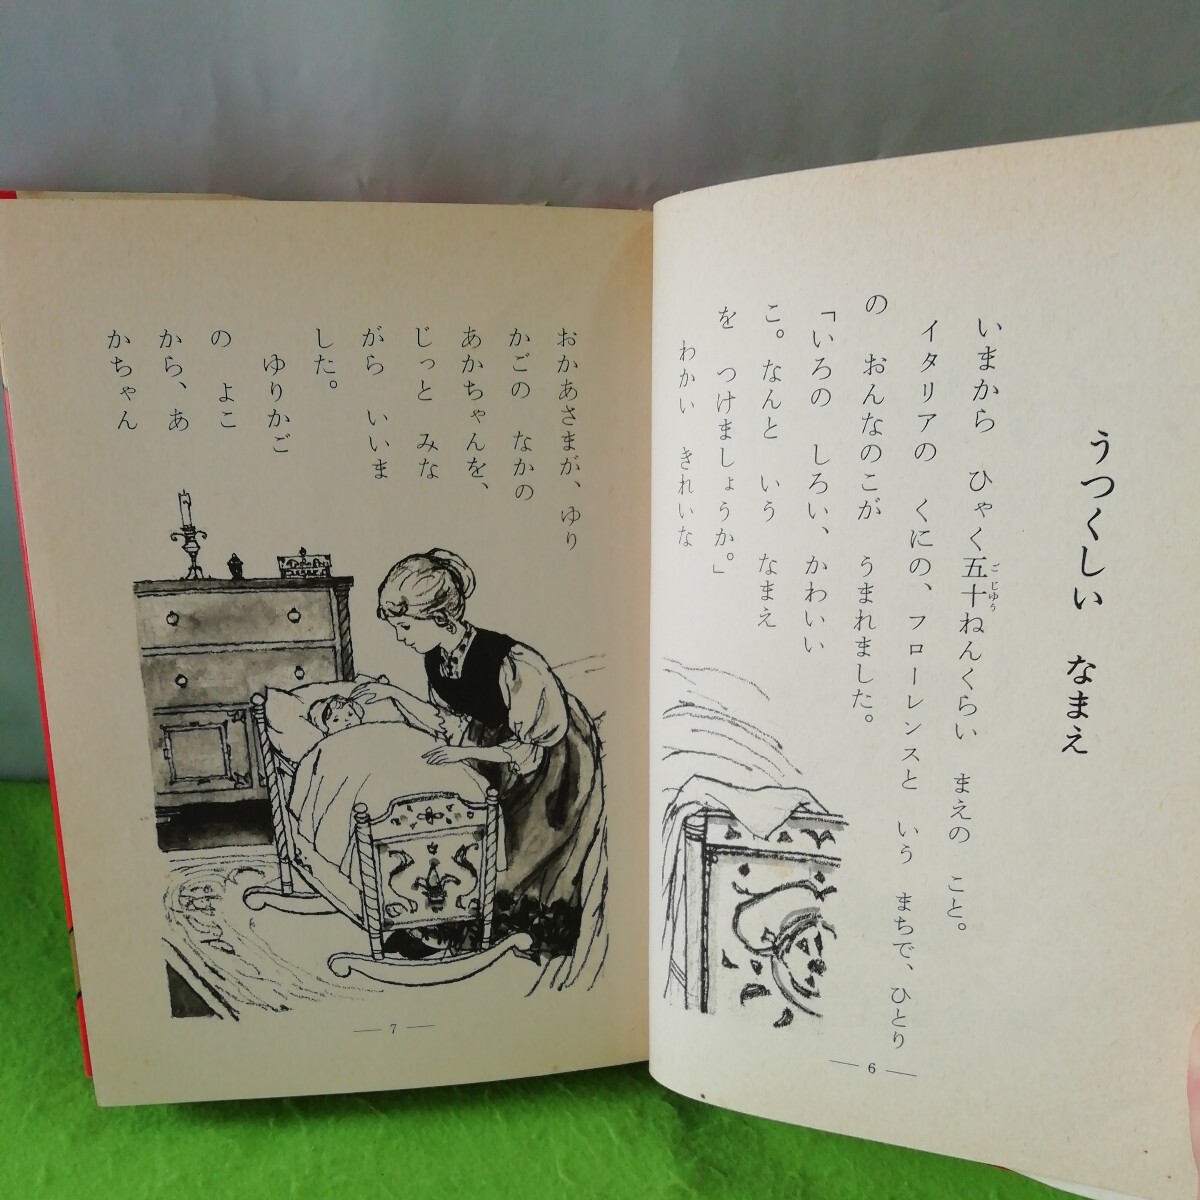 うつくしい　なまえ
いまから　ひゃく五十ねんくらい　まえの　こと。
ごじゅう
イタリアの　くにの、フローレンスと　いう　まちで、ひとり
の　おんなのこが　うまれました。
「いろの　しろい、かわいい
こ。なんと　いう　なまえ
を　つけましょうか。」
わかい　きれいな
6
おかあさまが、ゆり
かごの　なかの
あかちゃんを、
じっと　みな
がら　いいま
した。
ゆりかご
の　よこ
から、あ
かちゃん
7